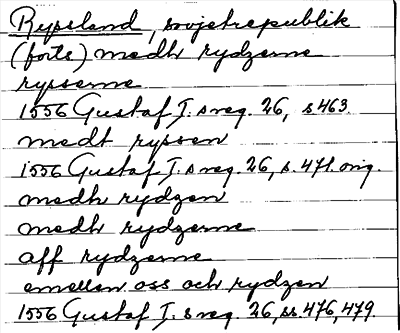 Ryssland, sovjetrepublik
(forts) medh rydzerne
rysserne
1556 Gustaf I:s reg. 26, s. 463.
medt ryssen
1556 Gustaf I:s reg. 26, s. 471. orig.
medh rydzen
medh rydzerne
aff rydzerne
emellan oss och rydzen
1556 Gustaf I:s reg. 26, ss. 476, 479.